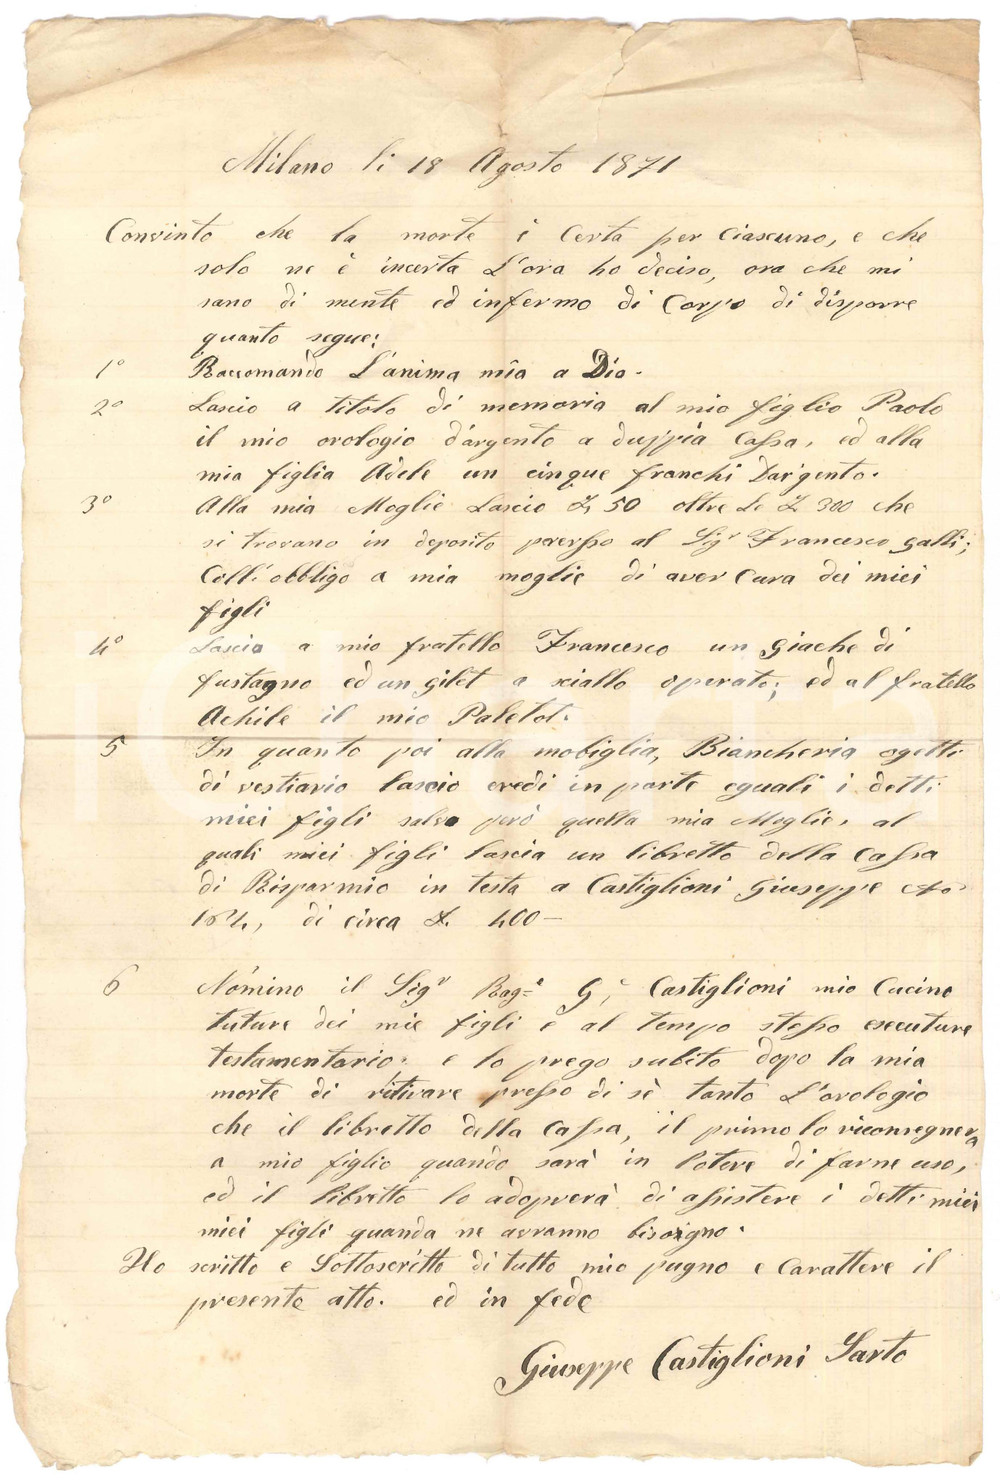 Milano li 18 Agosto 1871
Convinto che la morte è Certa per Ciascuno, e che
solo ne è incerta L'ora ho deciso, ora che mi
sano di mente ed infermo di Corpo di disporre
quanto segue:
1° Raccomando L'anima mia a Dio.
2° Lascio a titolo di memoria al mio figlio Paolo
il mio orologio d'argento a duppia Cassa, ed alla
mia figlia Adele un cinque franchi Dargento.
3° Alla mia Moglie Lascio £ 50 oltre Le £ 300 che
si trovano in deposito presso al Sigr Francesco Galli;
Coll'obbligo a mia moglie di aver Cura dei miei
figli
4° Lascio a mio fratello Francesco un Giache di
fustagno ed un gilet a sciallo operato; ed al fratello
Achile il mio Paletot.
5 In quanto poi alla mobiglia, Biancheria ogetti
di vestiario lascio eredi in parte eguali i detti
miei figli salvo però quella mia Moglie, al
quali miei figli lascia un libretto della Cassa
di Risparmio in testa a Castiglioni Giuseppe No
di circa £. 400 —
6 Nomino il Sigr Rag.e G.e Castiglioni mio Cucino
tuture dei mie figli e al tempo stesso esecuture
testamentario. e lo prego subito dopo la mia
morte di ritirare presso di sè tanto L'orologio
che il libretto della Cassa, il primo lo riconsegnera
a mio figlio quando sarà in Potere di farne uso,
ed il libretto lo adoprerà di assistere i detti miei
miei figli quanda ne avranno bisogno.
Ho scritto e Sottoscritto di tutto mio pugno e Carattere il
presente atto. ed in fede
Giuseppe Castiglioni Sarto